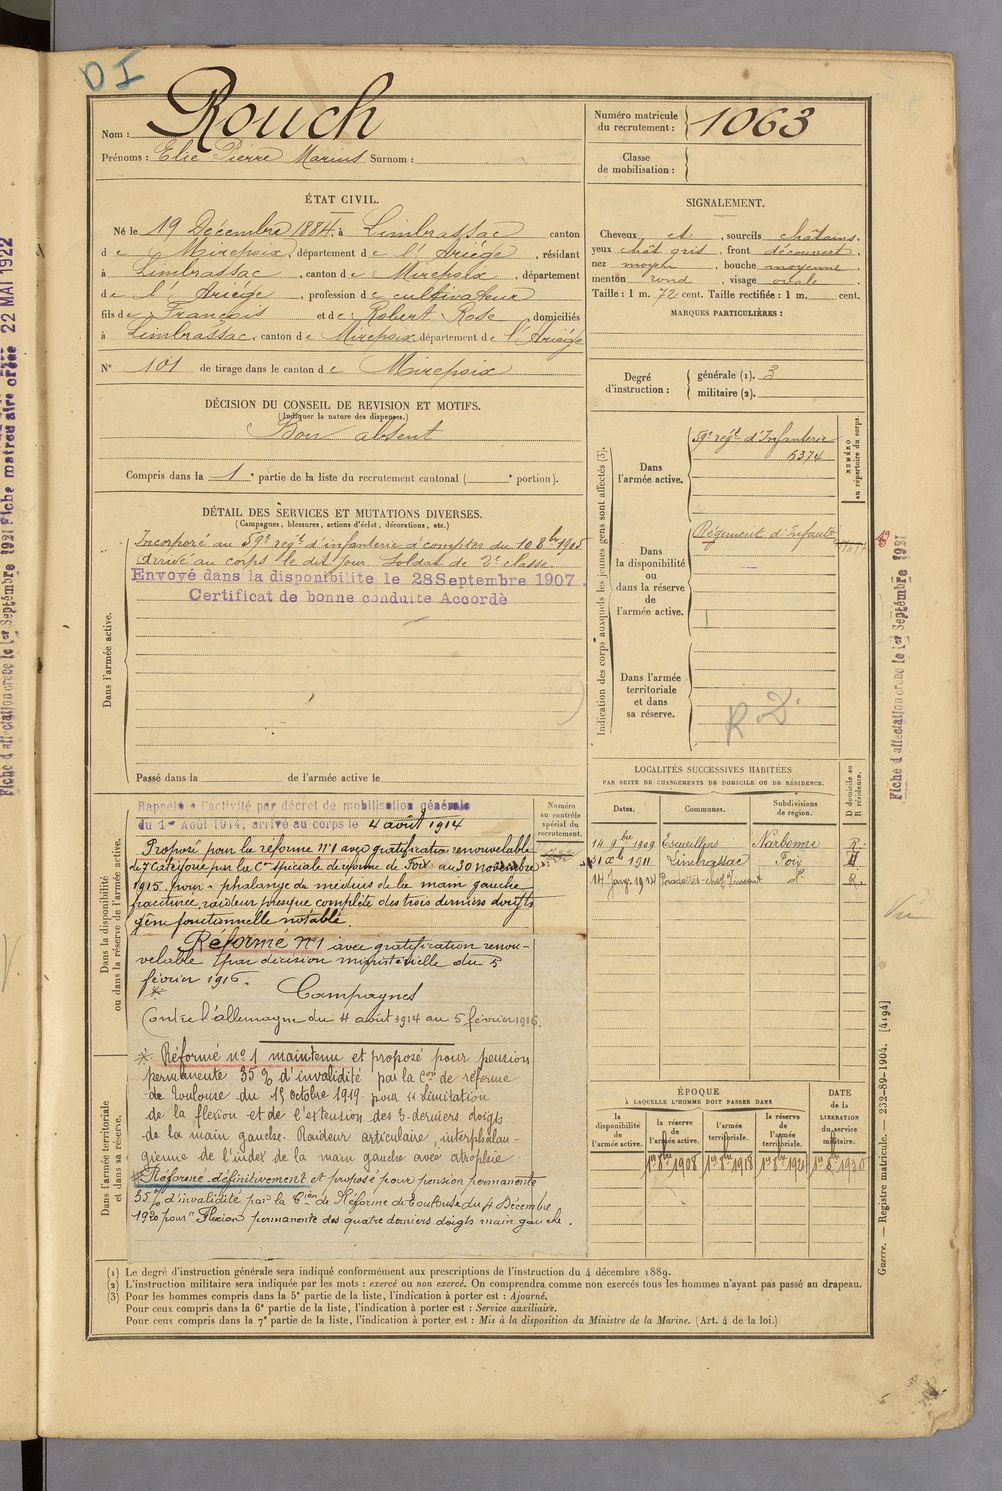 DI
Nom : Rouch
Prénoms : Elie Pierre Marius Surnom :
Numéro matricule du recrutement : 1063
Classe de mobilisation :
ÉTAT CIVIL.
Né le 19 Décembre 1884, à Limbrassac canton
de Mirepoix, département de l'Ariége, résidant
à Limbrassac, canton de Mirepoix, département
de l'Ariége, profession de cultivateur
fils de François et de Robert Rose domiciliés
à Limbrassac, canton de Mirepoix, département de l'Ariége
N° 101 de tirage dans le canton de Mirepoix
SIGNALEMENT.
Cheveux et, sourcils châtains,
yeux chât gris, front découvert,
nez moyen, bouche moyenne,
menton rond, visage ovale
Taille : 1 m. 72 cent. Taille rectifiée : 1 m. cent.
MARQUES PARTICULIÈRES :
Degré d'instruction : générale (1). 3
militaire (2).
DÉCISION DU CONSEIL DE REVISION ET MOTIFS.
(Indiquer la nature des dispenses.)
Bon absent
Compris dans la 1e partie de la liste du recrutement cantonal ( e portion).
DÉTAIL DES SERVICES ET MUTATIONS DIVERSES.
(Campagnes, blessures, actions d'éclat, décorations, etc.)
Dans l'armée active.
Incorporé au 59e régt d'infanterie à compter du 10 8bre 1905
Arrivé au corps le dit jour Soldat de 2e classe
Envoyé dans la disponibilite le 28 Septembre 1907.
Certificat de bonne conduite Accordé
Passé dans la de l'armée active le
Indication des corps auxquels les jeunes gens sont affectés (3).
Dans l'armée active.
59e régt d'Infanterie
5374
NUMÉRO au répertoire du corps.
Dans la disponibilité ou dans la réserve de l'armée active.
Régiment d'Infante
Dans l'armée territoriale et dans sa réserve.
R.D.
Dans la disponibilité ou dans la réserve de l'armée active.
Rappelé à l'activité par décret de mobilisation générale
du 1er Août 1914, arrivé au corps le 4 août 1914
Numéro au contrôle spécial du recrutement.
Proposé pour la réforme n°1 avec gratification renouvelable
de 7e Catégorie par la Con Spéciale de réforme de Foix au 30 novembre
1915 pour « phalange du médius de la main gauche
fracturée, raideur presque complète des trois derniers doigts
gêne fonctionnelle notable.
Réformé n°1 avec gratification renou-
velable par décision ministérielle du 5
février 1916.
Campagnes
Contre l'allemagne du 4 août 1914 au 5 février 1916.
Dans l'armée territoriale et dans sa réserve.
* Réformé n° 1 maintenu et proposé pour pension
permanente 35 % d'invalidité par la Con de réforme
de Toulouse du 15 octobre 1919 pour « Limitation
de la flexion et de l'extension des 3 derniers doigts
de la main gauche. Raideur articulaire, interphalan-
gienne de l'index de la main gauche avec atrophie.
Réformé définitivement et proposé pour pension permanente
35% d'invalidité par la Cion de Réforme de Toulouse du 4 Décembre
1920 pour "Flexion permanente des quatre derniers doigts main gauche.
LOCALITÉS SUCCESSIVES HABITÉES
PAR SUITE DE CHANGEMENTS DE DOMICILE OU DE RÉSIDENCE.
Dates. Communes. Subdivisions de région. D domicile ou R résidence.
14 9bre 1909 Narbonne R.
1911 Limbrassac Foix
14 Janv. 1914 R.
Vu
ÉPOQUE
À LAQUELLE L'HOMME DOIT PASSER DANS
la disponibilité de l'armée active.
la réserve de l'armée active.
l'armée territoriale.
la réserve de l'armée territoriale.
DATE de la LIBERATION du service militaire.
1er 8bre 1908 1er 8bre 1918 1er 8bre 1924 1er 8bre 1930
(1) Le degré d'instruction générale sera indiqué conformément aux prescriptions de l'instruction du 4 décembre 1889.
(2) L'instruction militaire sera indiquée par les mots : exercé ou non exercé. On comprendra comme non exercés tous les hommes n'ayant pas passé au drapeau.
(3) Pour les hommes compris dans la 5e partie de la liste, l'indication à porter est : Ajourné.
Pour ceux compris dans la 6e partie de la liste, l'indication à porter est : Service auxiliaire.
Pour ceux compris dans la 7e partie de la liste, l'indication à porter est : Mis à la disposition du Ministre de la Marine. (Art. 4 de la loi.)
Guerre. — Registre matricule. — 232-89-1904. [4194]
Fiche d'affectation créée le 1er Septembre 1921
Fiche d'affectation créée le 1er Septembre 1921 Fiche matricu aire créée 22 MAI 1922